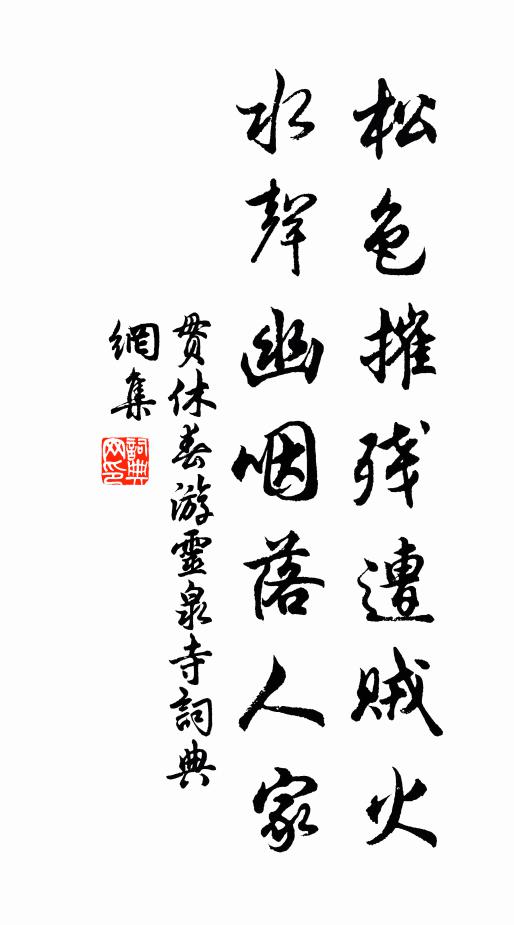 松色摧残遭賊火
水聲幽咽落人家
貫休春游靈泉寺詞典
網集
詞典网印